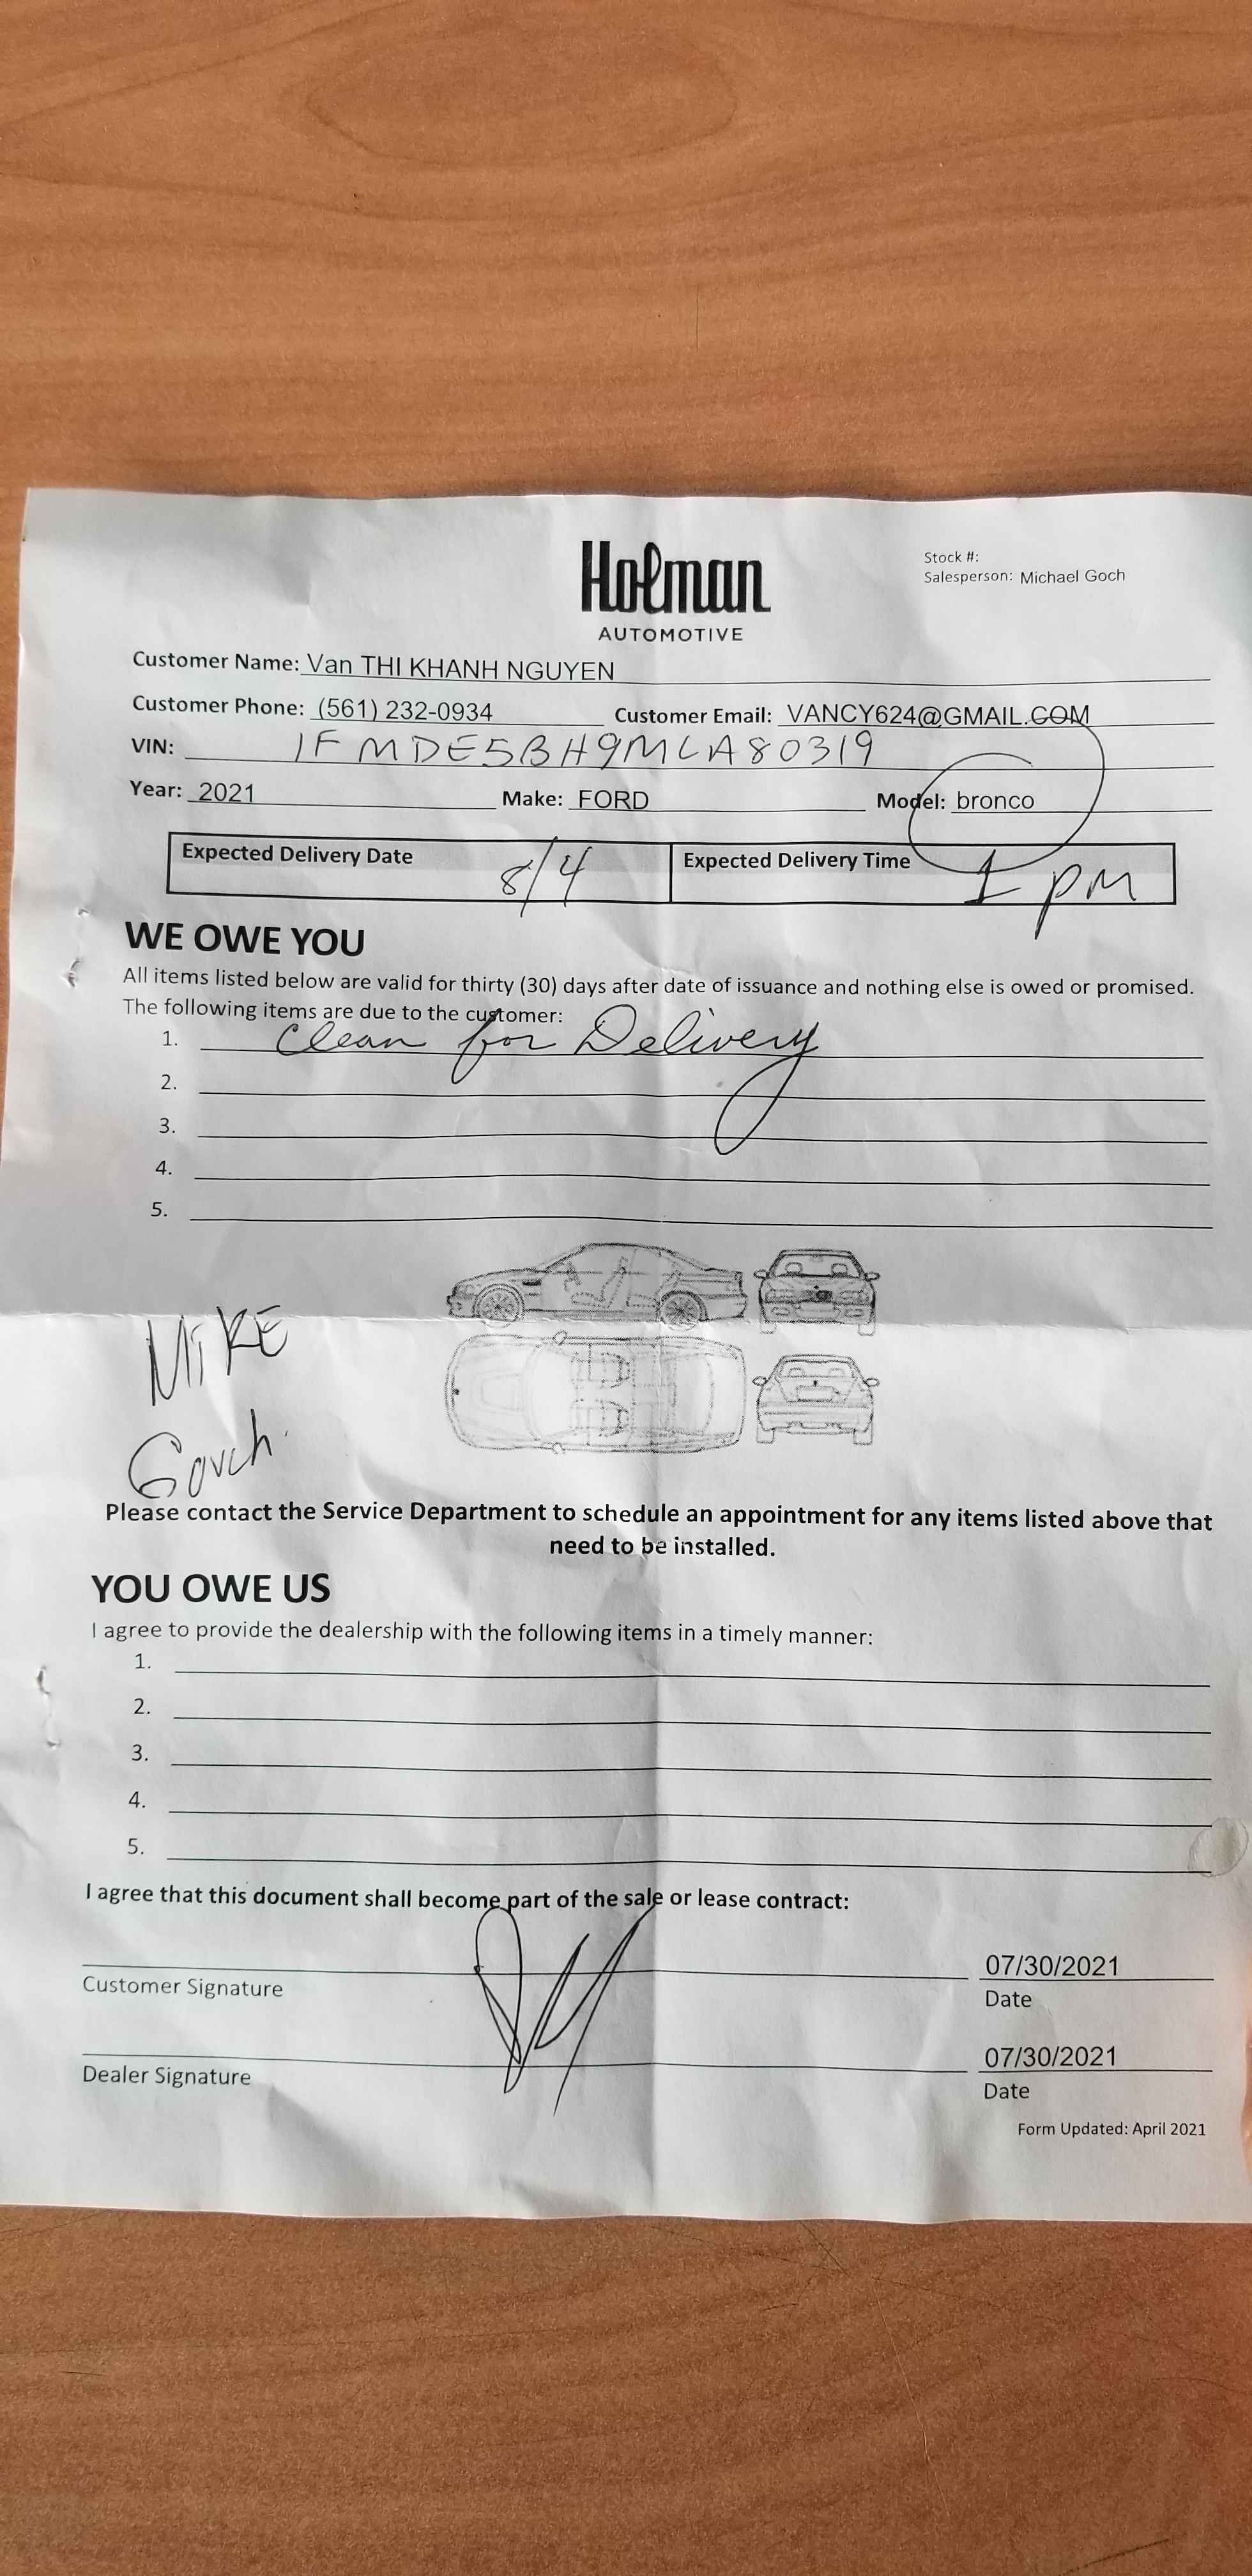 Holman
AUTOMOTIVE
Stock #:
Salesperson: Michael Goch
Customer Name: Van THI KHANH NGUYEN
Customer Phone: (561) 232-0934 Customer Email: VANCY624@GMAIL.COM
VIN: 1FMDE5BH9MLA80319
Year: 2021 Make: FORD Model: bronco
Expected Delivery Date 8/4 Expected Delivery Time 1 pm
WE OWE YOU
All items listed below are valid for thirty (30) days after date of issuance and nothing else is owed or promised.
The following items are due to the customer:
1. Clean for Delivery
2.
3.
4.
5.
MiKE
Gouch
Please contact the Service Department to schedule an appointment for any items listed above that
need to be installed.
YOU OWE US
I agree to provide the dealership with the following items in a timely manner:
1.
2.
3.
4.
5.
I agree that this document shall become part of the sale or lease contract:
07/30/2021
Customer Signature Date
07/30/2021
Dealer Signature Date
Form Updated: April 2021